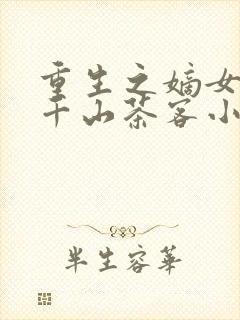 重生之嫡女
千山茶客小
半生容華